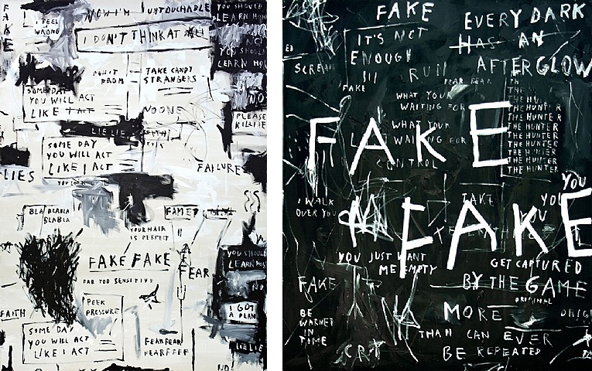 FAKE
I FEEL
WRONG
NOW I'M UNTOUCHABLE
YOU SHOULD
LEARN HOW
I DON'T THINK AT ALL
YOU SHOULD
LEARN HOW
TAKE CANDY
STRANGERS
SOME DAY
YOU WILL ACT
LIKE I ACT
NO ONE
NO
PLEASE
KILL ME
LIE LIE
FAITH
SOME DAY
YOU WILL ACT
LIKE I ACT
LIES
FAILURE
BLA BLABLA
BLABLA
FAME
YOUR HAIR
IS PERFECT
YOU SHOULD
LEARN HOW
FAKE FAKE
FEAR
FAR TOO SENSITIVE
PEER
PRESSURE
I GOT
A PLAN
FAITH
SOME DAY
YOU WILL ACT
LIKE I ACT
FEARFEAR
FEARFEEF
LIE LIE
NO
FAKE
EVERY DARK
HAS AN
AFTERGLOW
IT'S NOT
ENOUGH
SCREAM
RUN
FAKE
FEAR FEAR
WHAT YOUR
WAITING FOR
THE
THE
THE HU
THE HUNTER
THE HUNTER
THE HUNTER
THE HUNTER
THE HUNTER
THE HUNTER
THE HUNTER
THE HUNTER
FAKE
WHAT YOUR
WAITING FOR
CONTROL
YOU
I WALK
OVER YOU
TAKE
YOU
FAKE
YOU JUST WANT
ME EMPTY
GET CAPTURED
BY THE GAME
FAKE
ORIGINAL
MORE
ORIGI
BE
WARNET
TIME
THAN CAN EVER
BE REPEATED